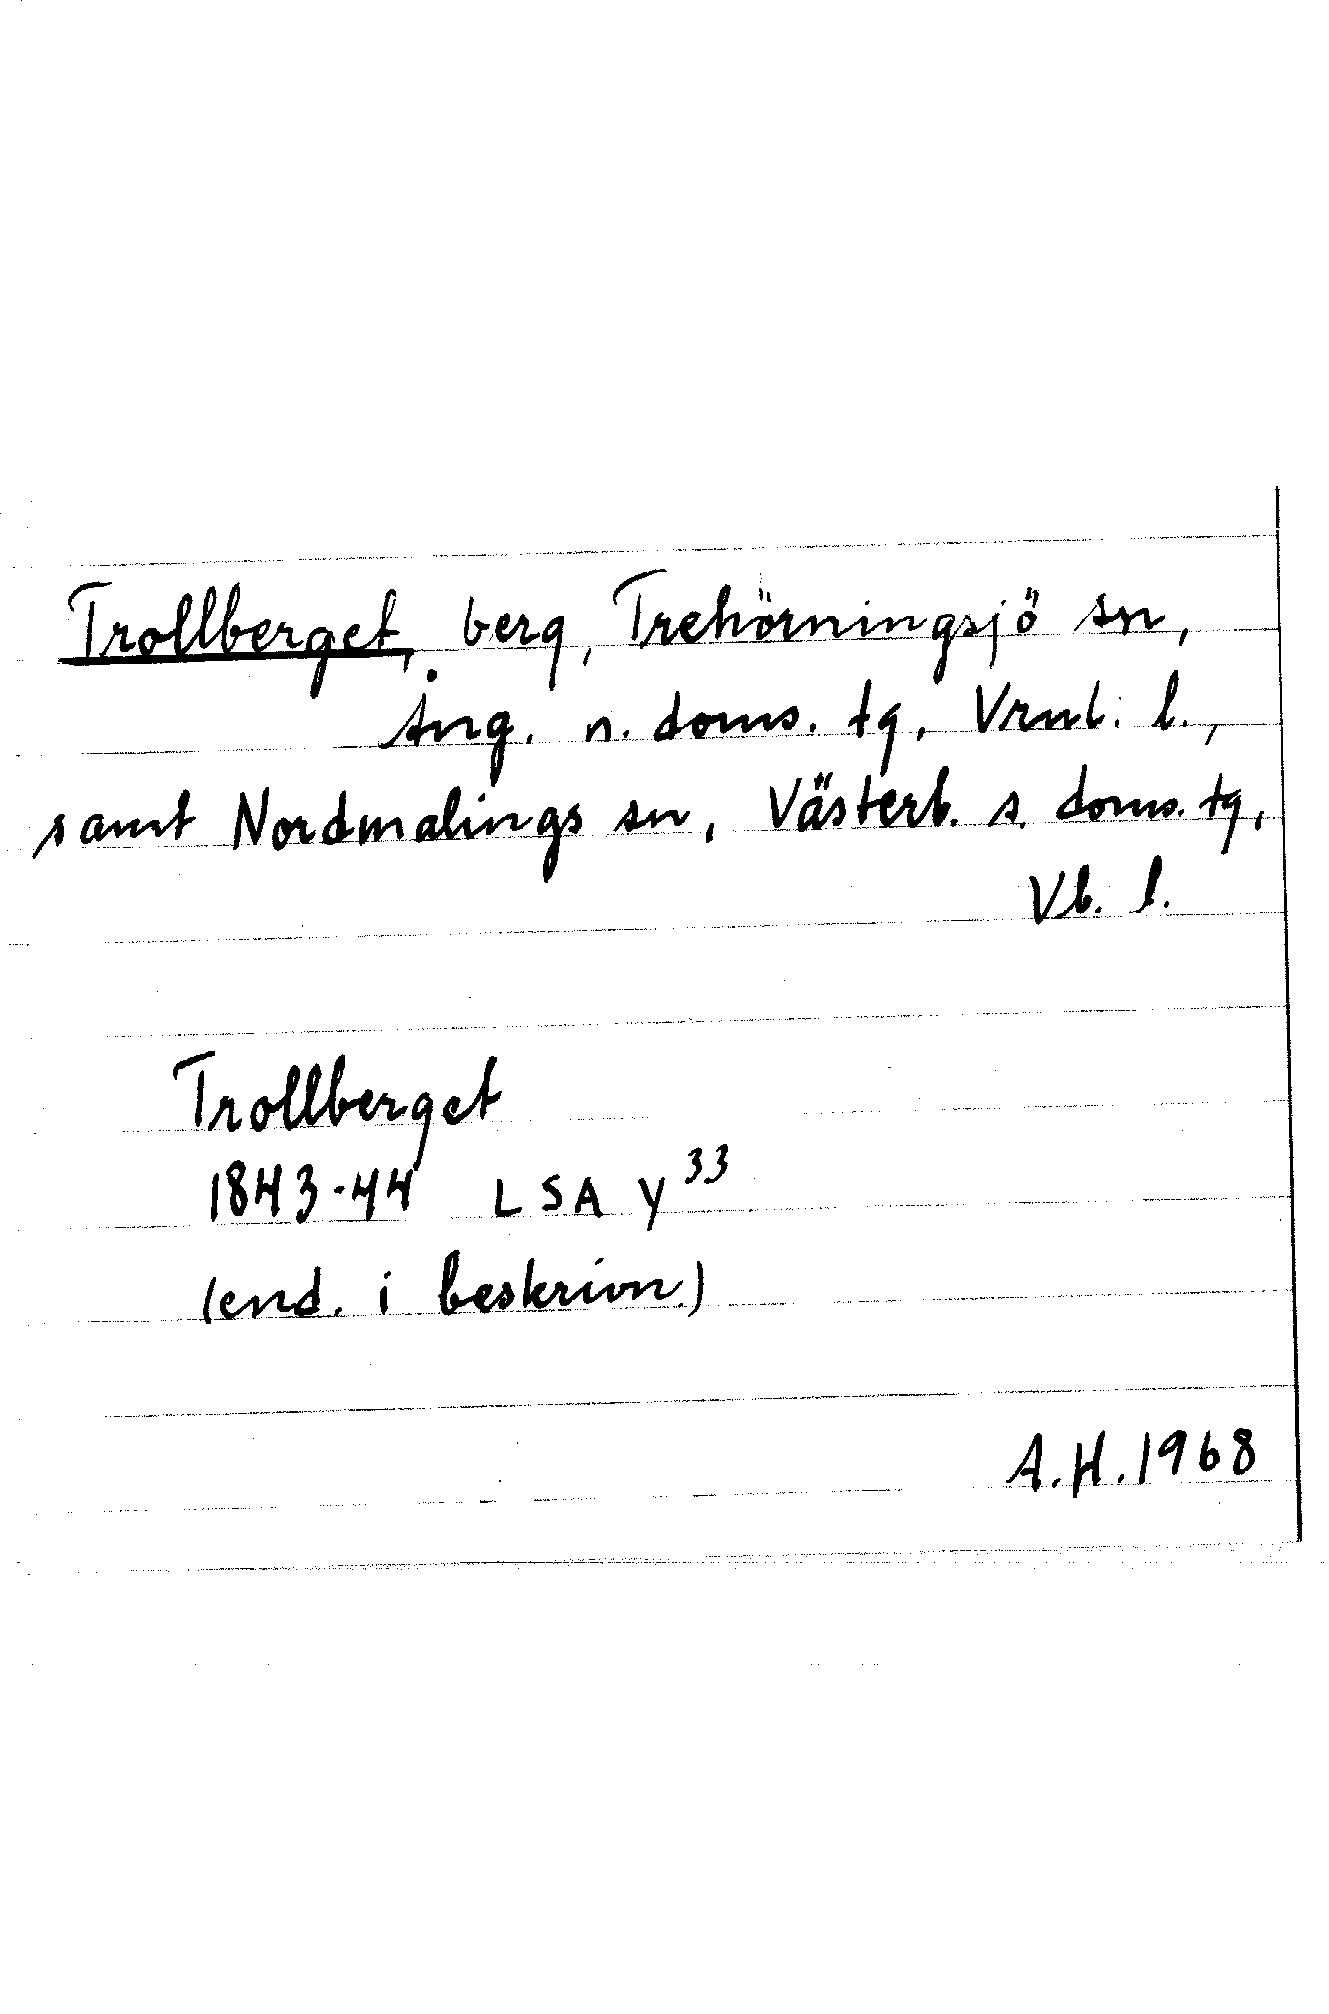 Trollberget, berg, Trehörningsjö sn,
Ång. n. doms. tg, Vrnl. l.,
samt Nordmalings sn, Västerb. s. doms. tg,
Vb. l.
Trollberget
1843-44 LSA Y³³
(end. i beskrivn.)
A.H. 1968